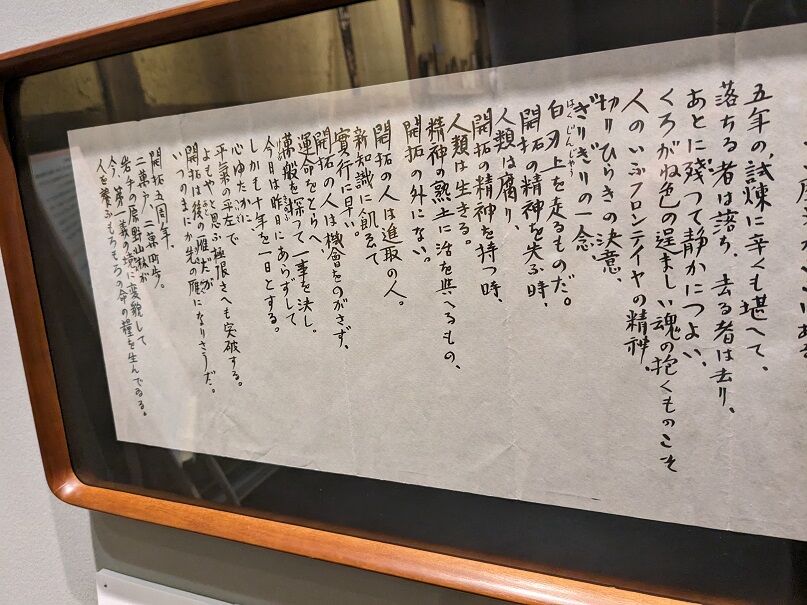 五年の試煉に辛くも堪へて、
落ちる者は落ち、去る者は去り、
あとに残つて静かにつよい、
くろがね色の逞ましい魂の抱くものこそ
人のいふフロンテイヤの精神、
切りひらきの決意、
ぎりぎりの一念、
はくじんじやう
白刃上を走るものだ。
開拓の精神を失ふ時、
人類は腐り、
開拓の精神を持つ時、
人類は生きる。
精神の熱土に活を與へるもの、
開拓の外にない。
開拓の人は進取の人。
新知識に飢ゑて
實行に早い。
開拓の人は機會をのがさず、
運命をとらへ、
萬般を探つて一事を決し、
今日は昨日にあらずして
しかも十年を一日とする。
心ゆたかに
平氣の平左で
よもやと思ふ極限さへも突破する。
開拓は後の雁だが
いつのまにか先の雁になりさうだ。
開拓五周年、
二萬戸、二萬町歩、
岩手の原野山林が
今、第一義の境に変貌して
人を養ふもろもろの命の糧を生んでゐる。